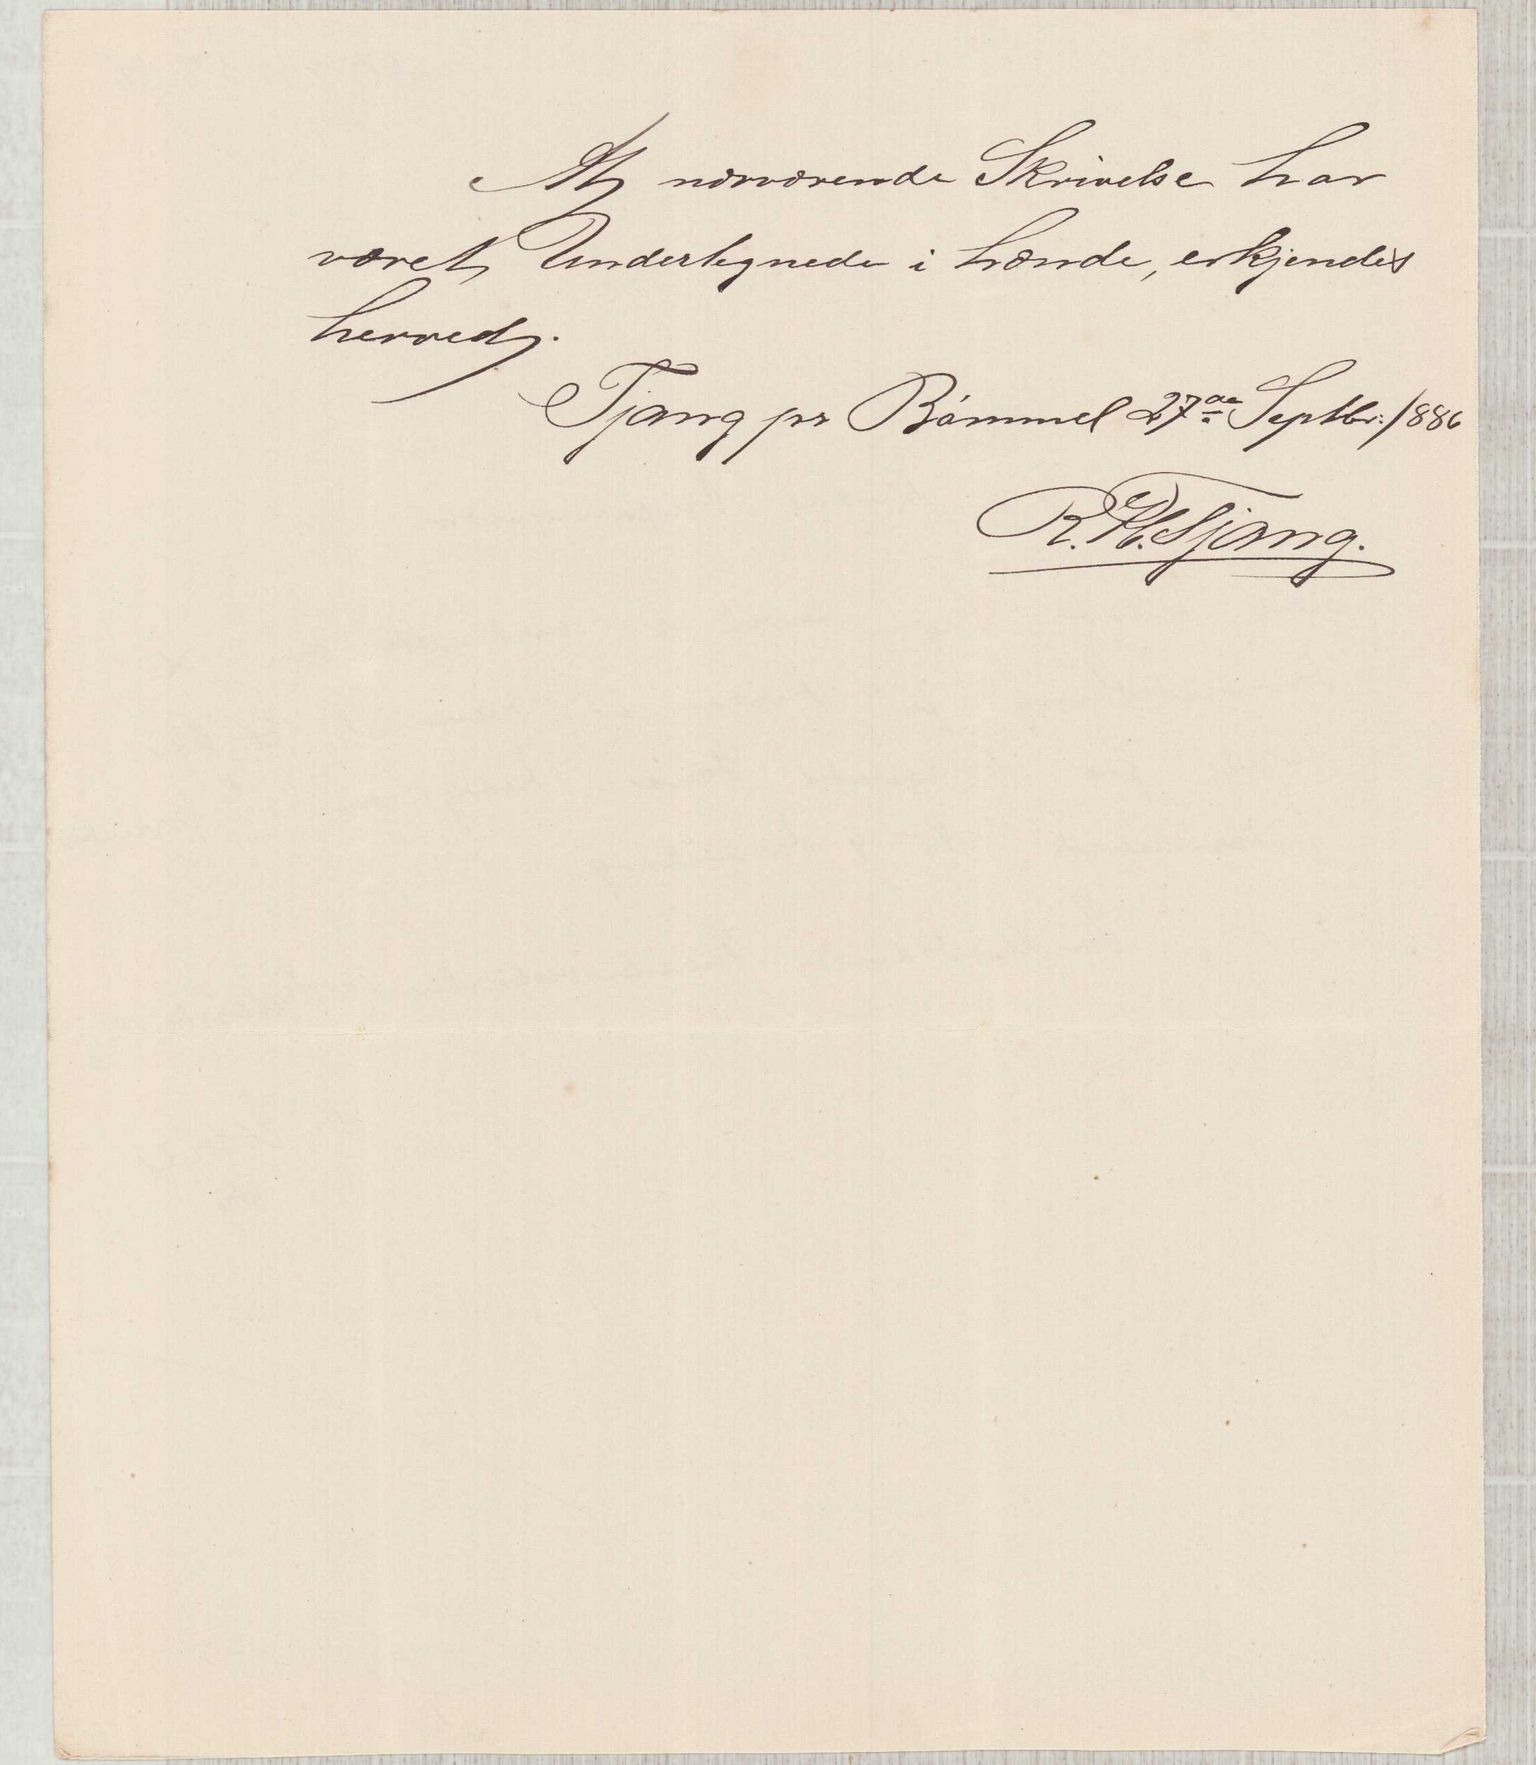 At nærværende Skrivelse har
været Undertegnede i hænde, erkjendes
herved.
Tjang pr Bömmel 27de Septbr: 1886
R. H. Tjang.